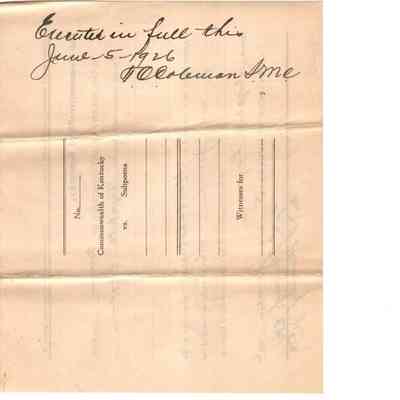 Executed in full this
June-5-1926
T C Coleman S.M.C
No.
Commonwealth of Kentucky
vs. Subpoena
Witnesses for